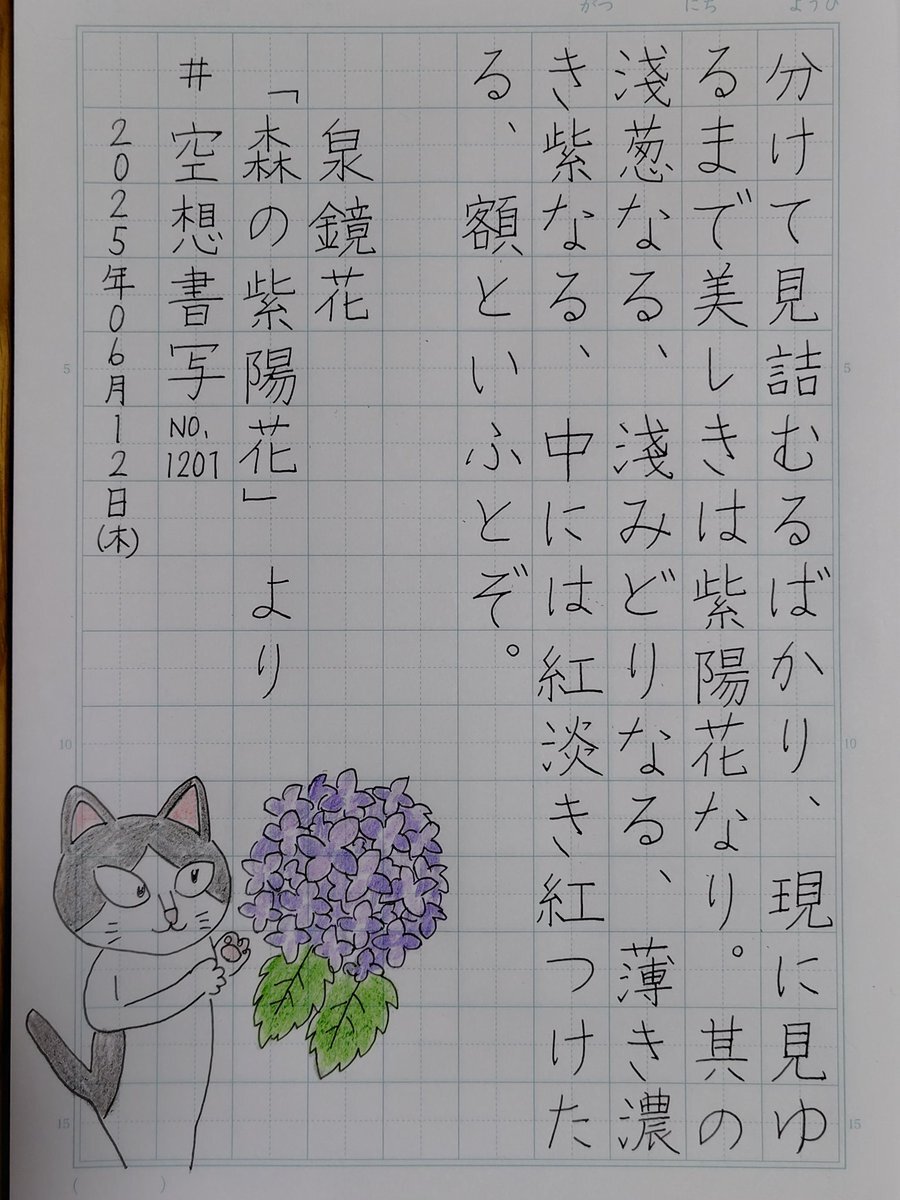 がつ にち ようび
分けて見詰むるばかり、現に見ゆ
るまで美しきは紫陽花なり。其の
淺葱なる、淺みどりなる、薄き濃
き紫なる、中には紅淡き紅つけた
る、額といふとぞ。
泉鏡花
「森の紫陽花」より
#空想書写NO.1201
2025年06月12日(木)
5
10
15
5
10
15
( )